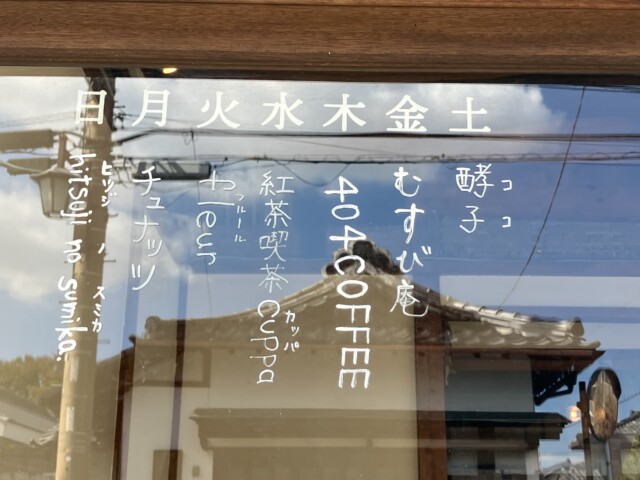 日 月 火 水 木 金 土
酵子
ココ
むすび庵
404COFFEE
紅茶喫茶 Cuppa
カッパ
fleur
フルール
チュナッツ
hitsuji no sumika.
ヒツジ ノ スミカ